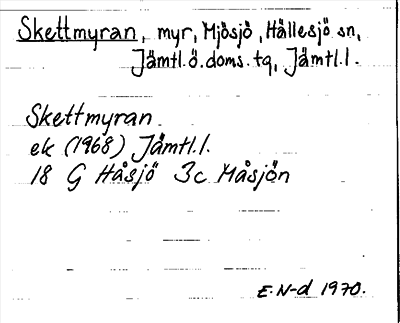 Skettmyran, myr, Mjösjö, Hällesjö sn,
Jämtl.ö.doms.tq, Jämtl.l.
Skettmyran
ek (1968) Jämtl.l.
18 G Håsjö 3c Måsjön
E.N-d 1970.